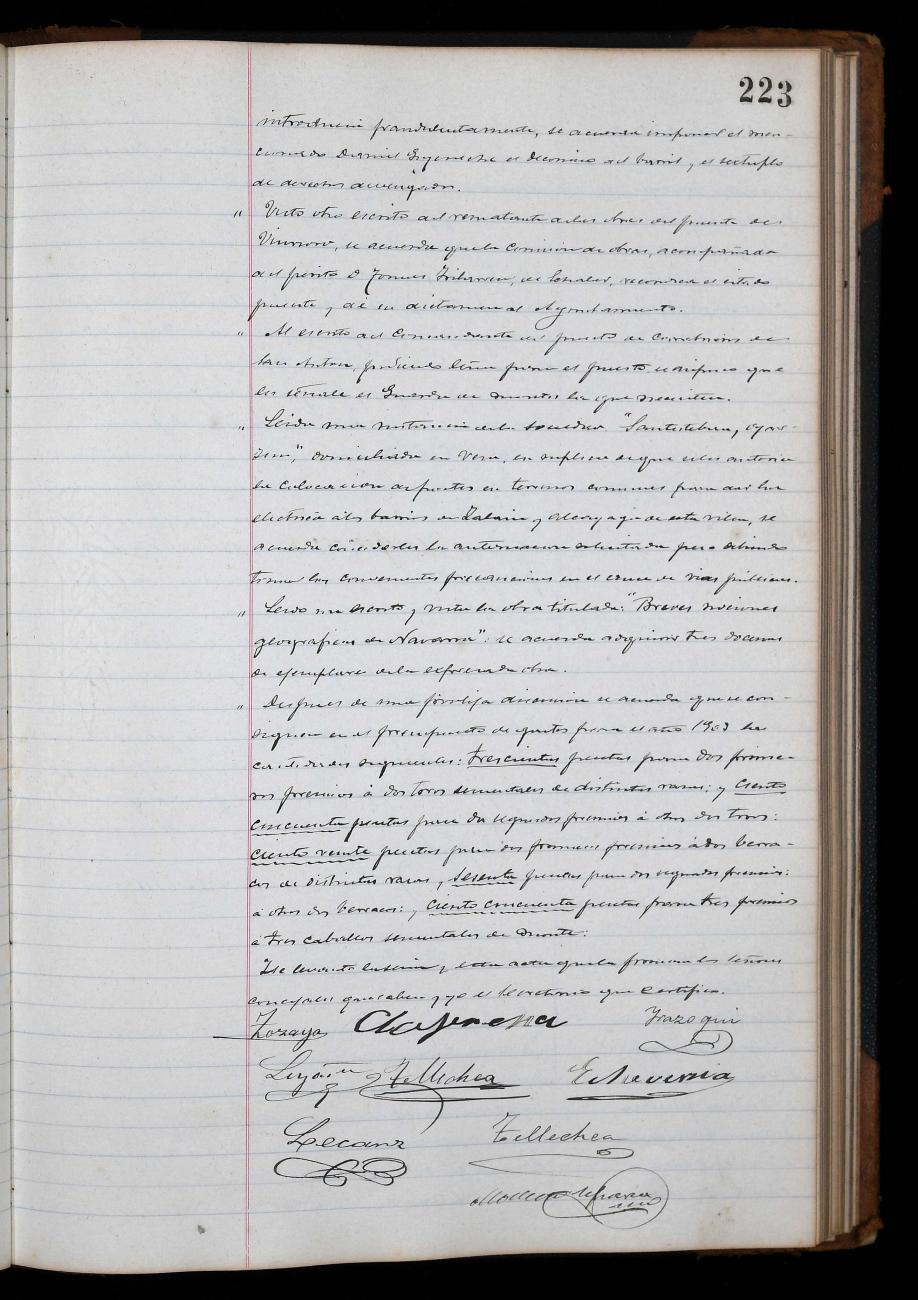 223
introducia fraudulentamente, se acuerda imponer al men-
cionado Daniel el decomiso del barril, y el séxtuplo
de derechos devengados.
" Visto otro escrito del rematante de las obras del puente de
se acuerda que la Comision de obras, acompañada
del perito D Tomas de recondca el citado
puente, y dé su dictamen al Ayuntamiento.
" Al escrito del Comandante del puesto de Carabineros de
San Anton, pidiendo leña para el puesto se dispuso que
les señale el Guarda de montes la que necesiten.
" Leida una instancia de la sociedad "Santesteban, Oyar-
zun", domiciliada en Vera, en suplica de que se les autorice
la colocacion de postes en terrenos comunes para dar luz
electrica á los barrios de Zalain y Alcayaga de esta villa, se
acuerda concederles la autorizacion solicitada pero debiendo
tomar las convenientes precauciones en el cruce de vias públicas.
" Leido un escrito y vista la obra titulada: "Breves nociones
geograficas de Navarra": se acuerda adquirir tres docenas
de ejemplares de la expresada obra.
" Despues de una prolija discusion se acuerda que se con-
signen en el presupuesto de gastos para el año 1903 las
cantidades siguientes: trescientas pesetas para dos prime-
ros premios á dos toros sementales de distintas razas: y ciento
cincuenta pesetas para dos segundos premios á otros dos toros:
ciento veinte pesetas para dos primeros premios á dos verra-
cos de distintas razas, y sesenta pesetas para dos segundos premios:
á otros dos verracos: y ciento cincuenta pesetas para tres premios
á tres caballos sementales de monte:
Y se levanto la sesion y esta acta que la firman los señores
concejales que saben y yo el Secretario que certifico.
Zozaya Irazoqui
Tellechea Echeverria
Lecanz Tellechea